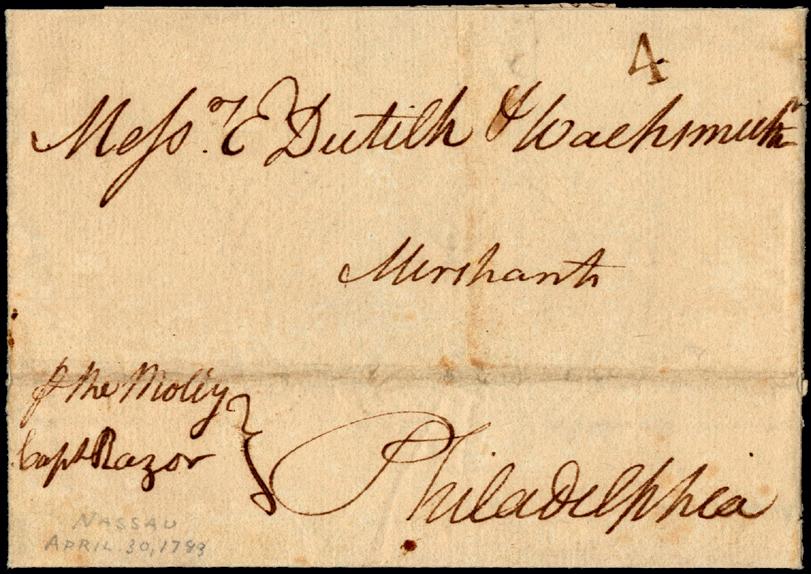 4
Messrs E Dutilh & Wachsmuth
Merchants
p the Molly
Capt Razor
Philadelphia
NASSAU
APRIL 30, 1793